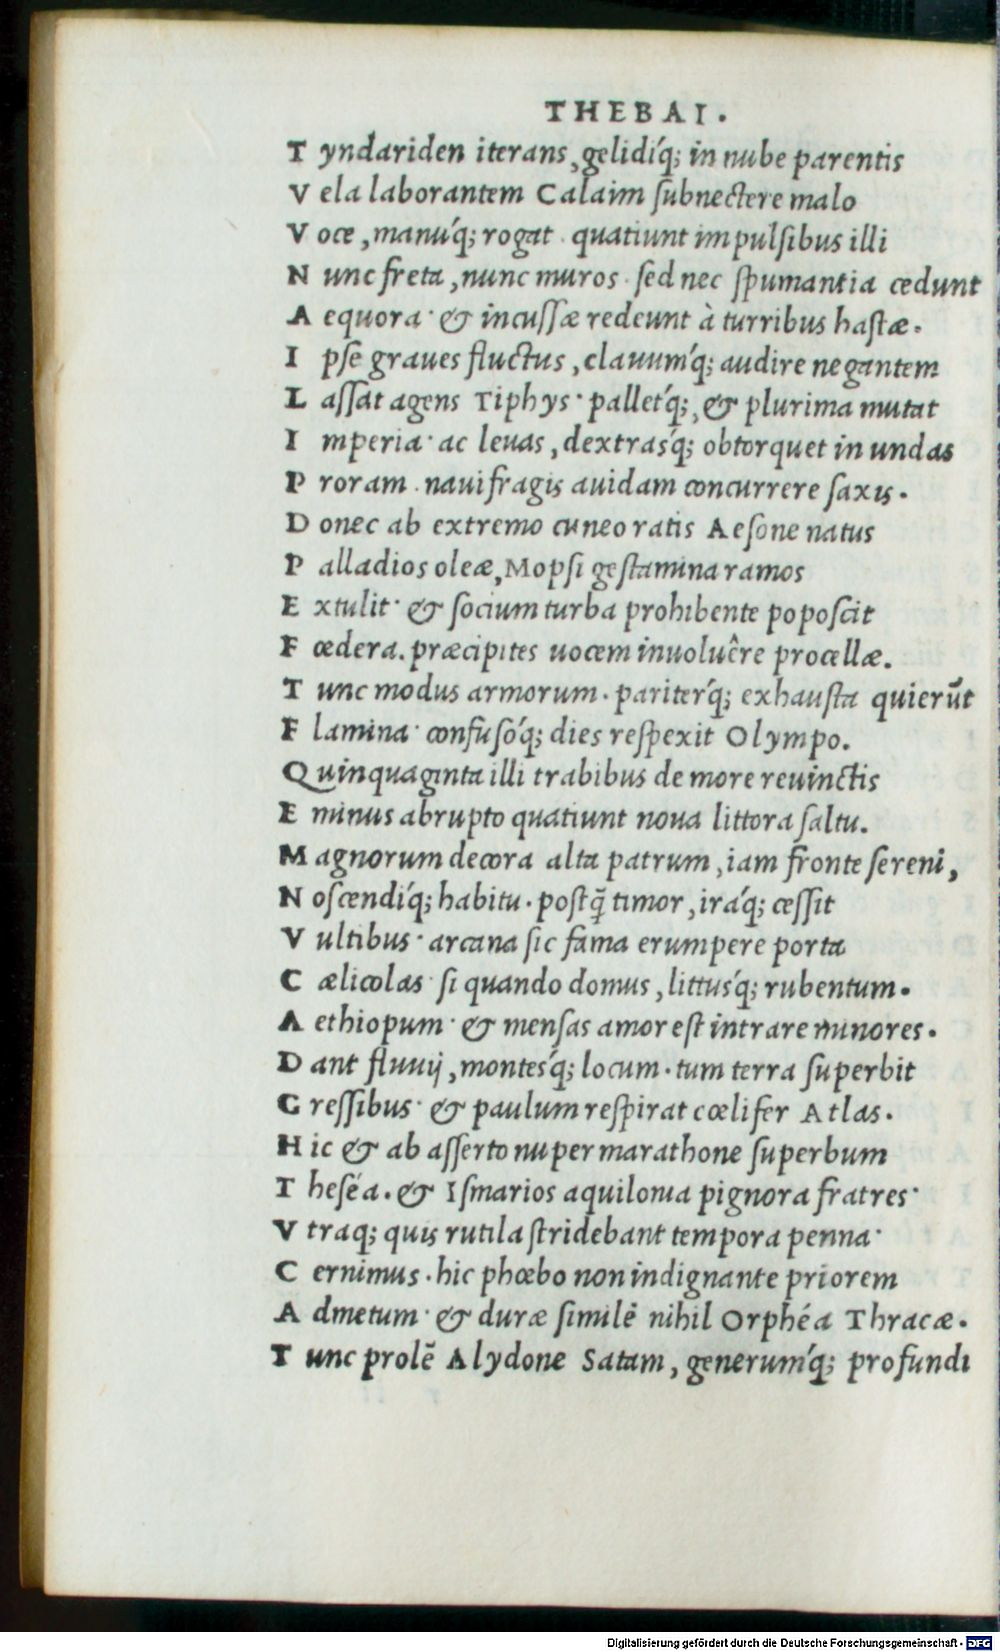 THEBAI.
T yndariden iterans, gelidíq; in nube parentis
V ela laborantem Calaim ſubnectere malo
V oce, manúq; rogat· quatiunt impulſibus illi
N unc freta, nunc muros· ſed nec ſpumantia cedunt
A equora· & incuſſæ redeunt à turribus haſtæ.
I pſe graues fluctus, clauuḿq; audire negantem
L aſſat agens Tiphys· pallet́q;, & plurima mutat
I mperia· ac leuas, dextraśq; obtorquet in undas
P roram· nauifragis auidam concurrere ſaxis.
D onec ab extremo cuneo ratis Aeſone natus
P alladios oleæ, Mopſi geſtamina ramos
E xtulit· & ſocium turba prohibente popoſcit
F œdera. præcipites uocem inuoluêre procellæ.
T unc modus armorum. pariteŕq; exhauſta quierũt
F lamina· confuſóq; dies reſpexit Olympo.
Quinquaginta illi trabibus de more reuinctis
E minus abrupto quatiunt noua littora ſaltu.
M agnorum decora alta patrum, iam fronte ſereni,
N oſcendíq; habitu. poſtq̃ timor, iráq; ceſſit
V ultibus· arcana ſic fama erumpere porta
C ælicolas· ſi quando domus, littuśq; rubentum.
A ethiopum· & menſas amor eſt intrare minores.
D ant fluuij, monteśq; locum. tum terra ſuperbit
G reſſibus· & paulum reſpirat cœlifer Atlas.
H ic & ab aſſerto nuper marathone ſuperbum
T heſéa. & Iſmarios aquilonia pignora fratres·
V traq; quis rutila ſtridebant tempora penna·
C ernimus. hic phœbo non indignante priorem
A dmetum· & duræ ſimilẽ nihil Orphéa Thracæ.
T unc prolẽ Alydone Satam, generuḿq; profundi
Digitalisierung gefördert durch die Deutsche Forschungsgemeinschaft - DFG